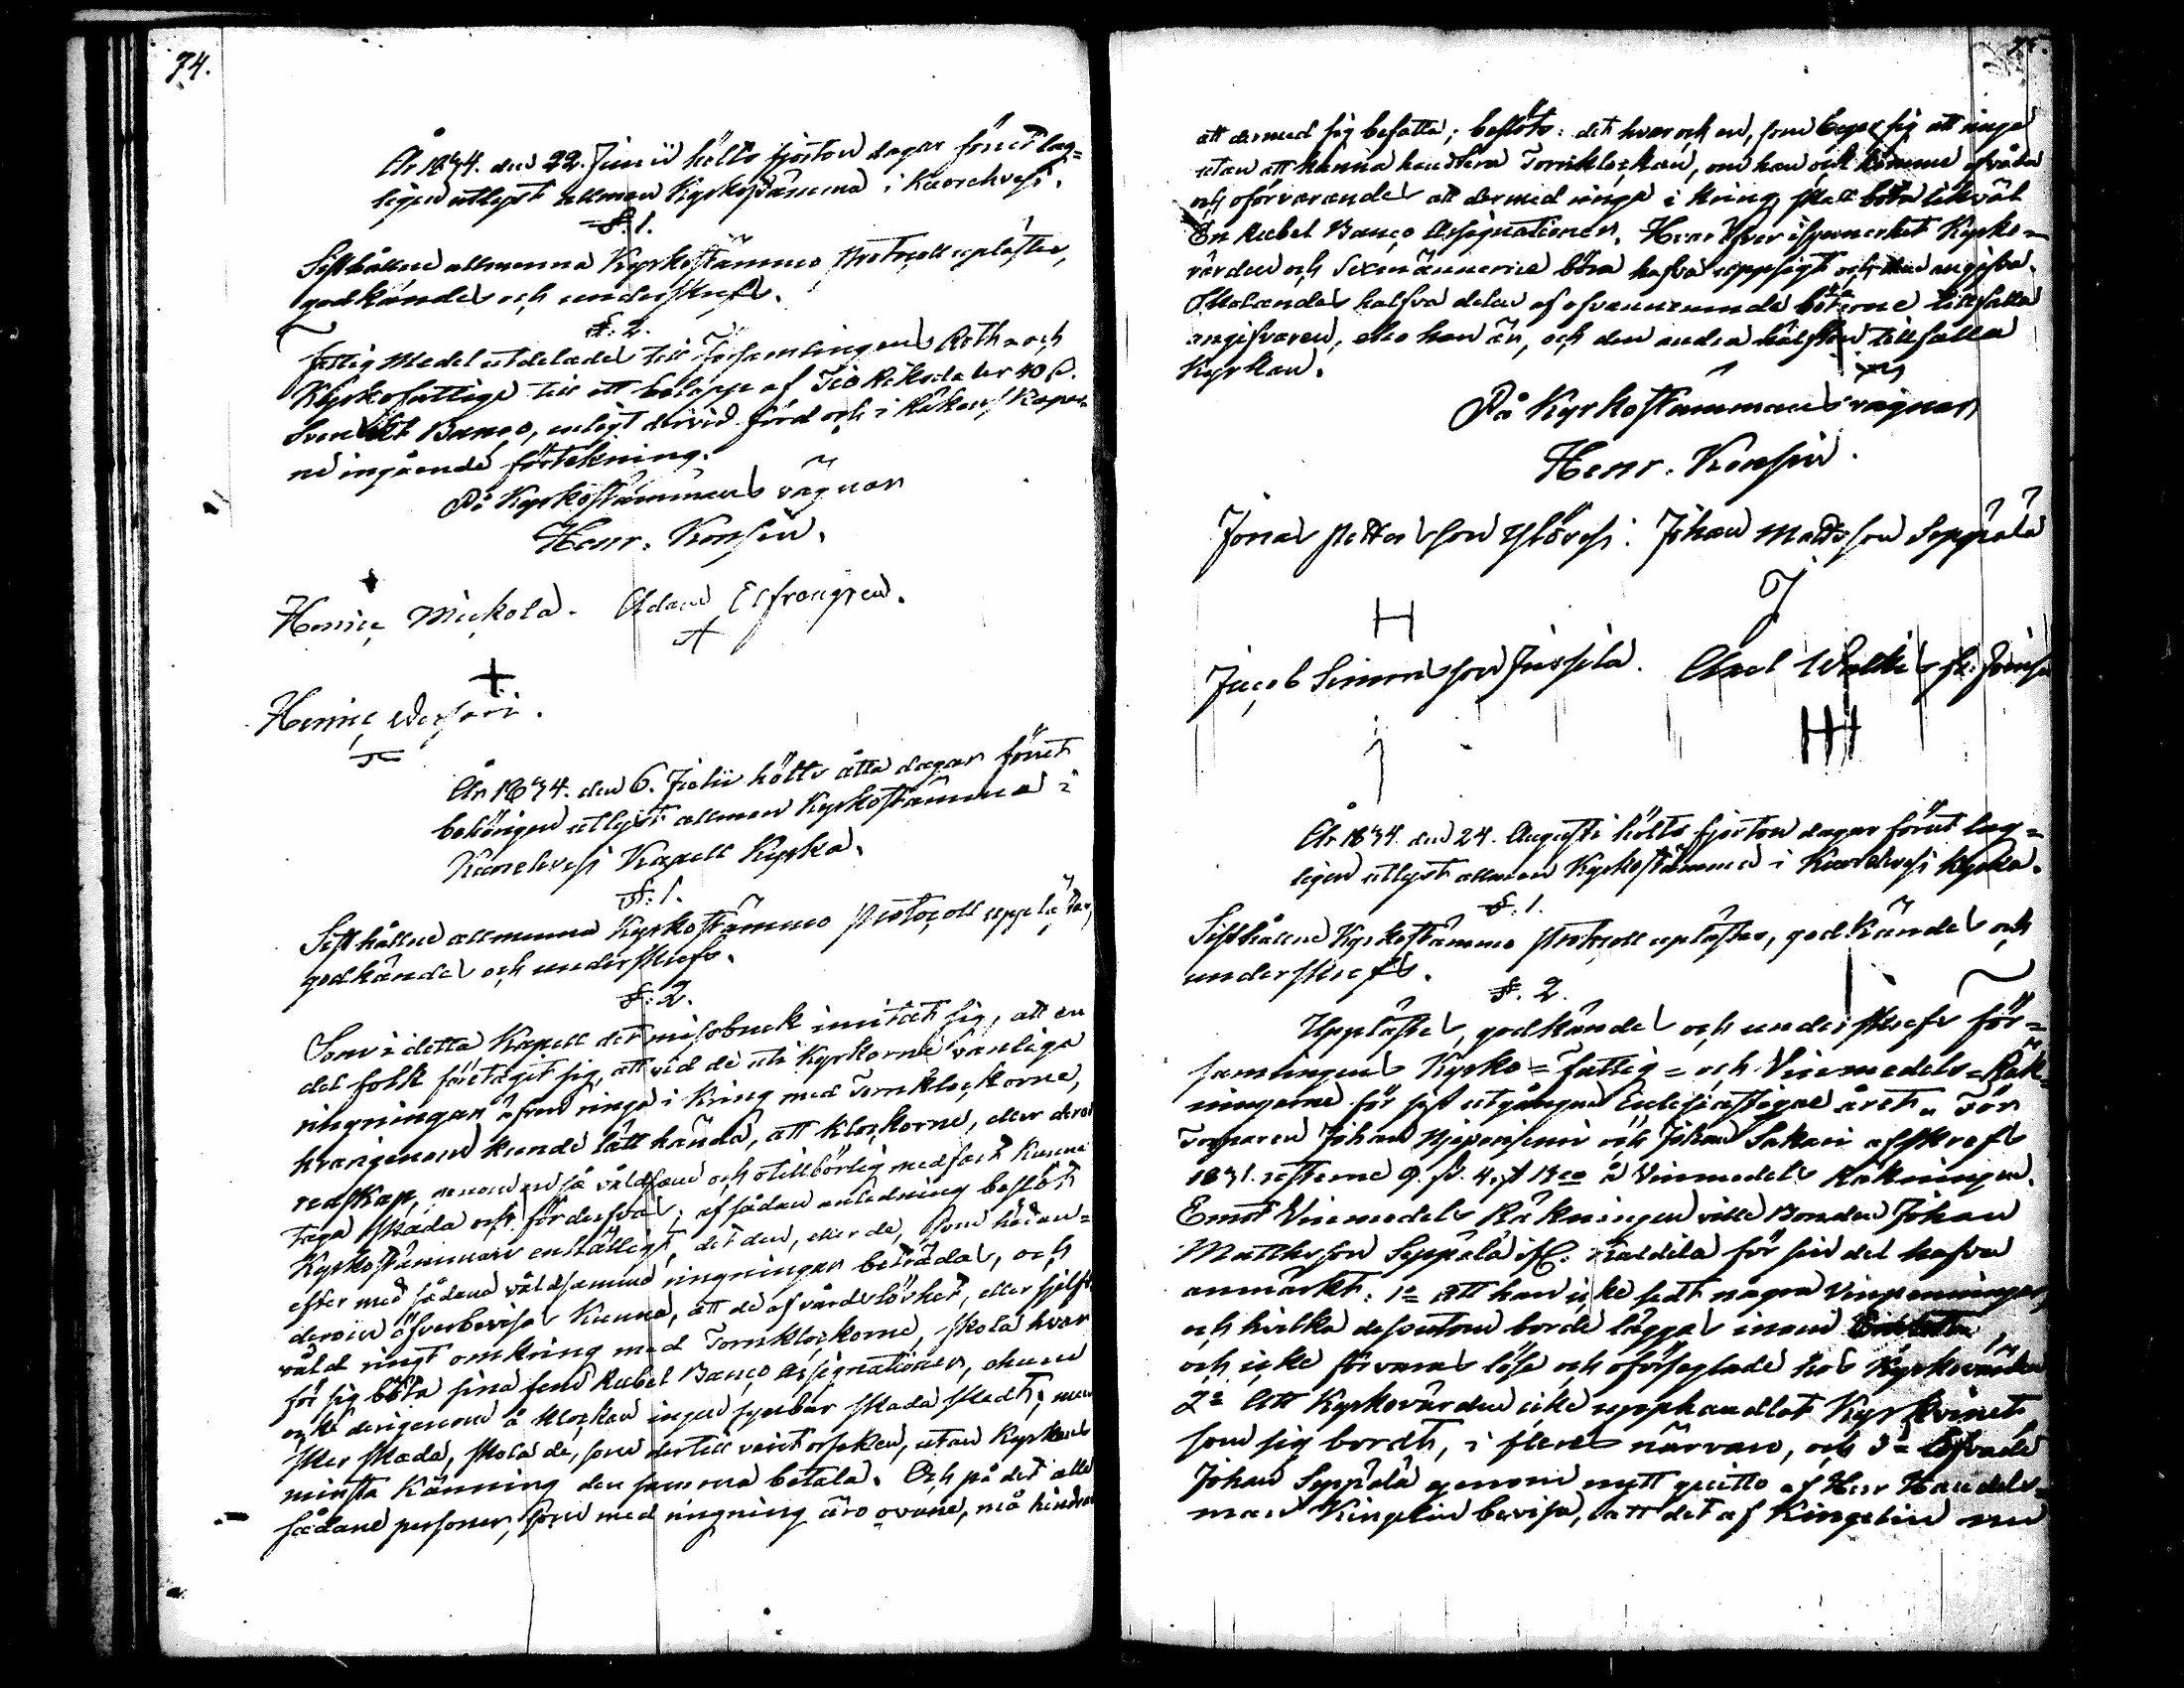 74.
År 1834. den 22. Junii hölts fjorton dagar förut lag=
ligen utlyst allman Kyrkostämma i Kuorehvesi.
§. 1.
Sisthållne allmenna Kyrkostämmo Protocoll uplästes,
godkändes och underskrefs.
§. 2.
Fattig Medel utdelades till Församlingens Roth- och
Kyrkofattige till ett belopp af Tio Riksdaler 40 s.
Svenskt Banco, enligt dervid förd och i Räkens Kaper
ne ingående förtekning.
På Kyrkostämmans vägnar
Henr. Konsin.
Henric Mickola. Adam Elfvengren.
Henric
År 1834. den 6. Julii hölts åtta dagar förut
behörigen utlyst allman Kyrkostämma i
Kuorehvesi Kapell Kyrka.
§. 1.
Sisthållne allmenna Kyrkostämmo Protocoll upplästes,
godkändes och underskrefs.
§. 2.
Som i detta Kapell det missbruk innitat sig, att en
del folk företagit sig, att vid de uti Kyrkorne vanliga
ringningar äfven ringa i kring med Tornklockorne,
hvarigenom kunde lätt hända, att klockorne, eller deras
redskap, genom en så våldsam och otillbörlig medfart kunne
taga skada och förderfvas; af sådan anledning beslöt
Kyrkostämman enhälligt, det den, eller de, som hädan=
efter med sådane våldsamme ringningar beträdas, och
deröver öfverbevisas kunna, att de af vårdslöshet, eller sjelfs
våld ringt omkring med Tornklockorne, skola hvar
för sig böta sina fem Rubel Banco Assignationer, ehuru
ock derigenom å klockan ingen synbar skada skedt; men
sker skada, skola de, som dertill varit orsaken, utan Kyrkans
minsta känning den samma betala. Och på det alla
sådane personer, som med ringning äro ovane, må hindras
75.
att dermed sig befatta; beslöts: det hvar och en, som beger sig att ringa
utan att kunna handtera Tornklockan, om han ock kömme af våda
och oförvarandes att dermed ringa i kring skall böta likväl
En Rubel Banco Assignationer. Hvaröfver isynnerhet Kyrko=
vården och Sexmännerne böra hafva uppsigt och angifva.
Skolandes halfva delen af ofvannemnde böterne tillfalla
angifvaren, eho han är, och den andra hälften tillfalla
Kyrkan.
På Kyrkostämmans vägnar
Henr. Konsin.
Jonas Pettersson Ylövesi. Johan Mattsson Seppälä
Jacob Simonsson Jussila. Axel
År 1834. den 24. Augusti hölts fjorton dagar förut lag=
ligen utlyst allman Kyrkostämma i Kuorehvesi Kyrka.
§. 1.
Sisthållne Kyrkostämmo Protocoll uplästes, godkändes och
underskrefs.
§. 2.
Upplästes, godkändes och underskrefs för=
samlingens Kyrko= fattig= och Vinmedels= Räk=
ningarne för sist utgångne Ecclesiastique året. För
Torparen Johan och Johan Sakari afskrefs
1831. resterne 9. s. 4. Bco å Vinmedels Räkningen.
Emot Vinmedels Räkningen ville Bonden Johan
Matthsson Seppälä för sin del hafva
anmärkt: 1o att han icke sedt några Vinpenningar,
och hvilka dessutom borde läggas inom
och icke förvaras löse och oförseglade hos Kyrkovärden
2o Att Kyrkovärden icke upphandlat Kyrkvinet
som sig bordt, i fleres närvaro, och 3o lofvade
Johan Seppälä genom nytt quitto af Herr Handels=
man Kingelin bevisa, att det af Kingelin